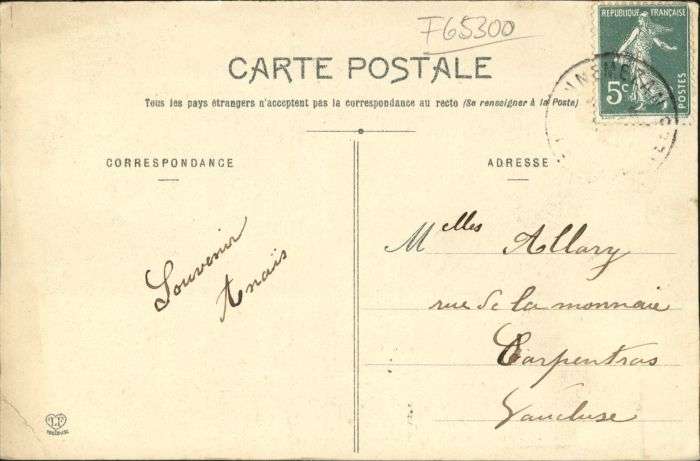 F65300
RÉPUBLIQUE FRANÇAISE
5c
POSTES
CARTE POSTALE
Tous les pays étrangers n'acceptent pas la correspondance au recto (Se renseigner à la Poste)
CORRESPONDANCE
ADRESSE
Souvenir
Anaïs
Melles Allary
rue de la monnaie
Carpentras
Vaucluse
LF